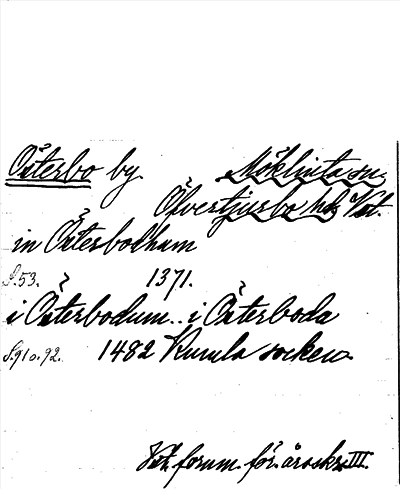 Österbo by. Möklinta sn
Öfvertjurbo hd, Vst.
in Österbodhum
S. 53. 1371.
i Österbodum.. i Österboda
S. 91 o. 92. 1482 Kumla socken
Vstm. fornm. för. årsskr. III.